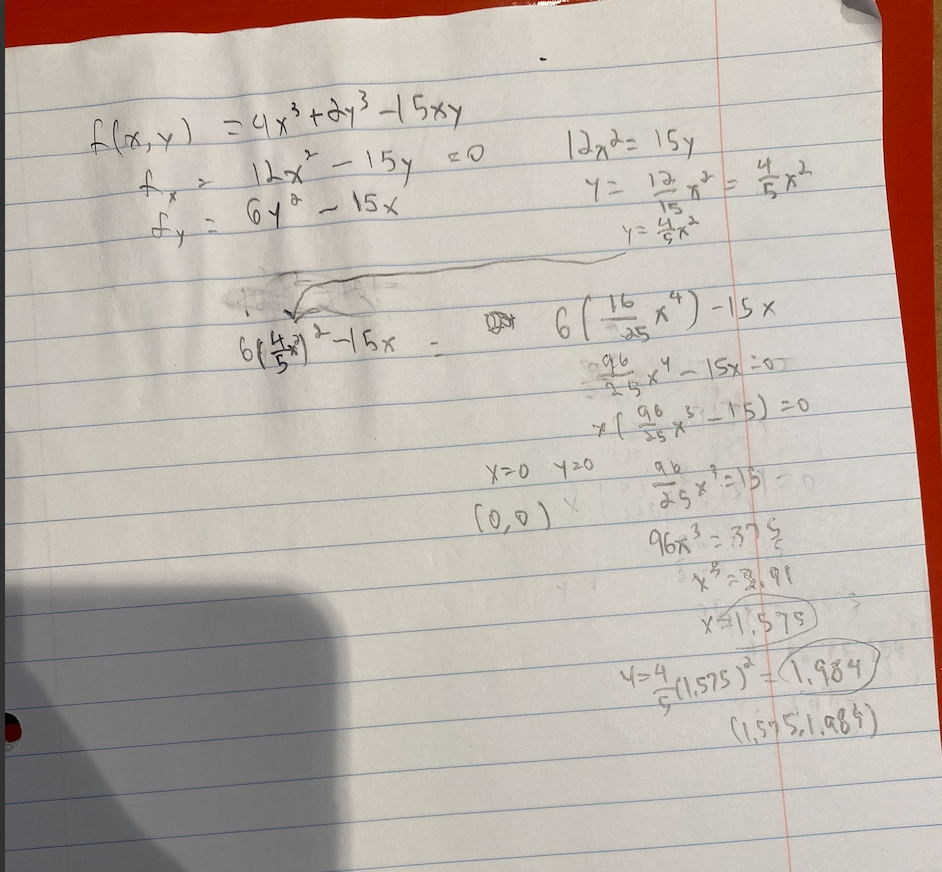 f(x,y) = 4x³ + 2y³ - 15xy
f_x = 12x² - 15y = 0
f_y = 6y² - 15x
12x² = 15y
y = 12/15 x² = 4/5 x²
y = 4/5 x²
6(4/5 x²)² - 15x =
6(16/25 x⁴) - 15x
96/25 x⁴ - 15x = 0
x(96/25 x³ - 15) = 0
x=0 y=0
(0,0)
96/25 x³ = 15
96x³ = 375
x³ = 3.91
x = 1.575
y = 4/5 (1.575)² = 1.984
(1.575, 1.984)